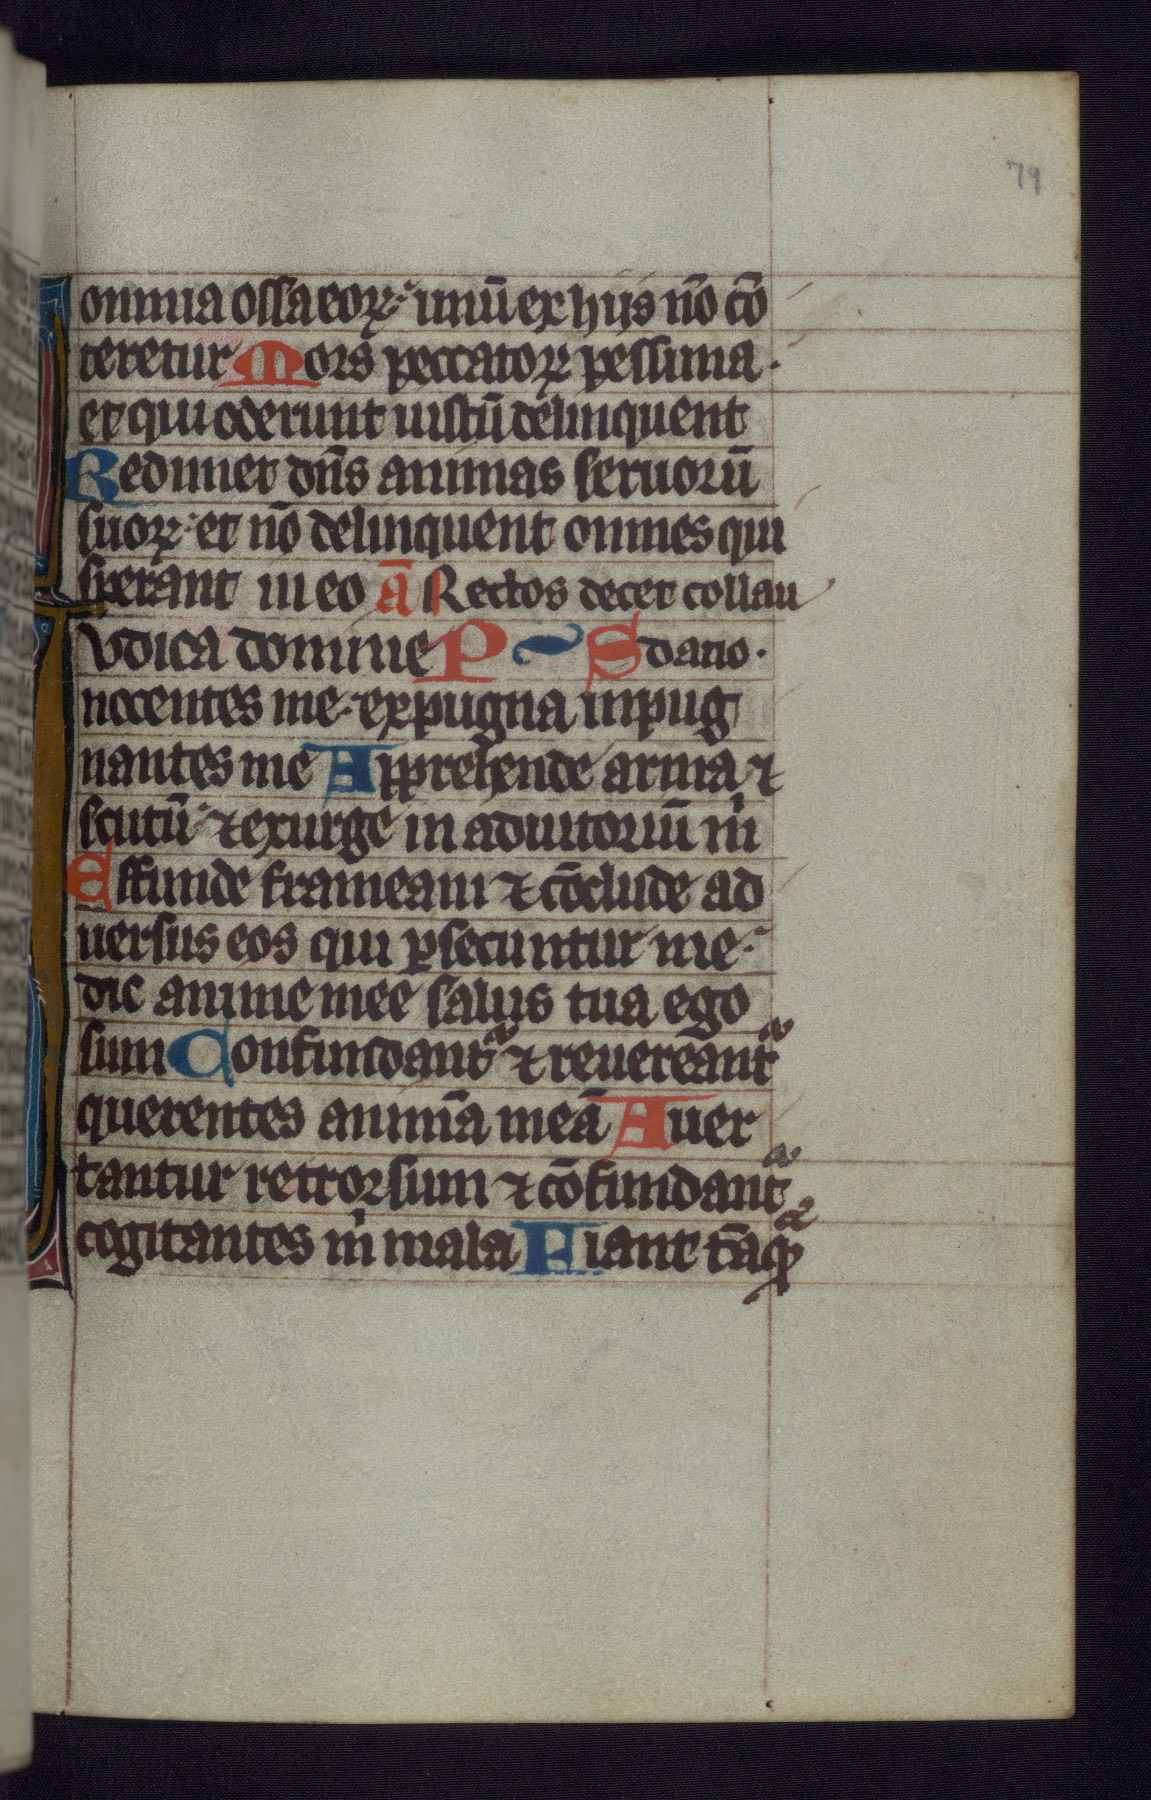 79
omnia ossa eoꝝ: unū ex hijs nō cō
teretur Mors peccatoꝝ pessima.
et qui oderunt iustū delinquent
Redimet dn̄s animas seruorū
suoꝝ: et nō delinquent omnes qui
sperant in eo ā Rectos decet collau
Iudica domine P S datio.
nocentes me. expugna inpug
nantes me Apprehende arma ⁊
scutū: ⁊ exurge in adiutoriū m̍
Effunde frameam ⁊ cōclude ad
uersus eos qui ꝑsecuntur me:
dic anime mee salus tua ego
sum Confundantᷣ ⁊ reuereantᷣ
querentes animā meā Auer
tantur retrorsum ⁊ cōfundantᷣ
cogitantes m̍ mala Fiant tāqᷓꝫ